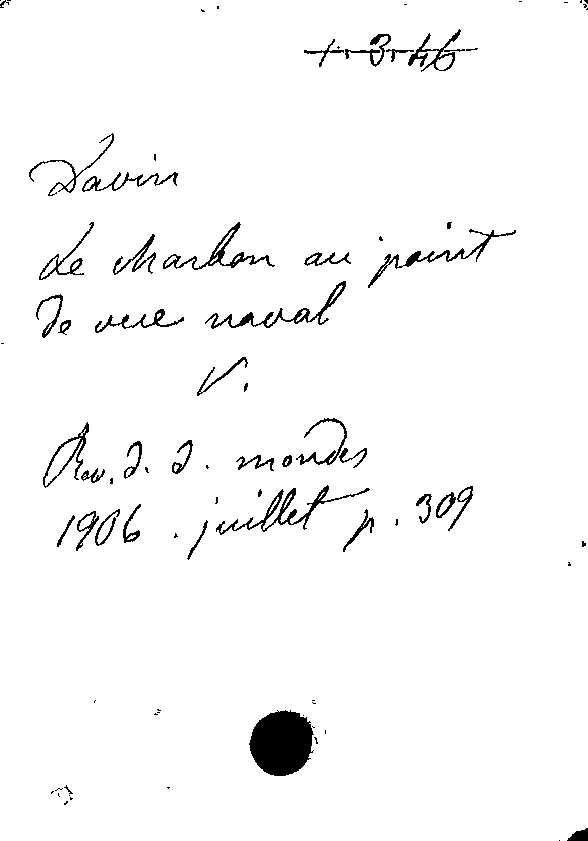 1.3.46
Davin
Le charbon au point
de vue naval
V.
Rev. d. d. mondes
1906. juillet p. 309